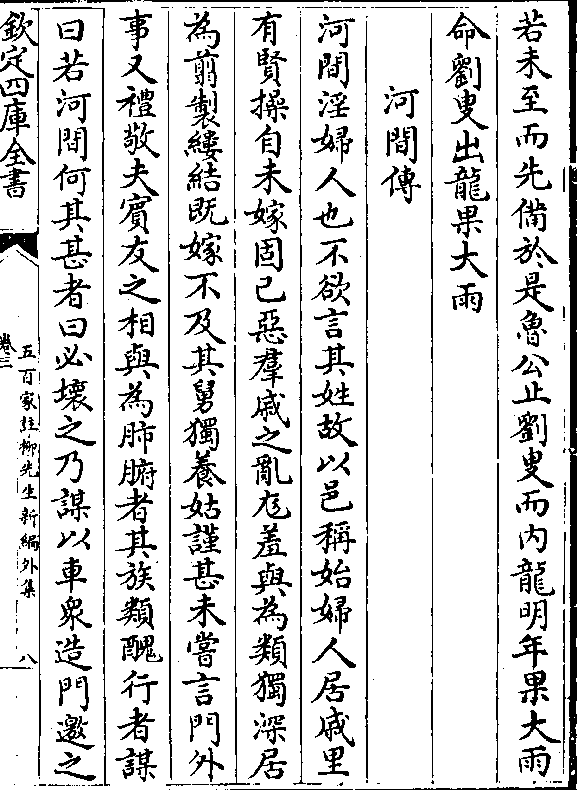 若未至而先備於是魯公止劉叟而内龍明年果大雨
命劉叟出龍果大雨
河間傳
河間淫婦人也不欲言其姓故以邑稱始婦人居戚里
有賢操自未嫁固已惡羣戚之亂尨羞與為類獨深居
為翦製縷結既嫁不及其舅獨養姑謹甚未嘗言門外
事又禮敬夫賓友之相與為肺腑者其族類醜行者謀
曰若河間何其甚者曰必壞之乃謀以車衆造門邀之
欽定四庫全書
卷三
五百家註柳先生新編外集
八